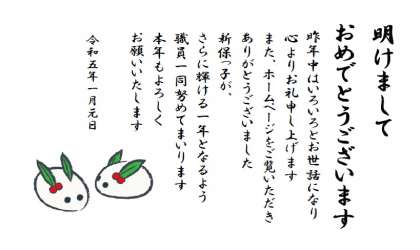 明けまして
おめでとうございます
昨年中はいろいろとお世話になり
心よりお礼申し上げます
また、ホームページをご覧いただき
ありがとうございました
新保っ子が、
さらに輝ける一年となるよう
職員一同努めてまいります
本年もよろしく
お願いいたします
令和五年一月元日